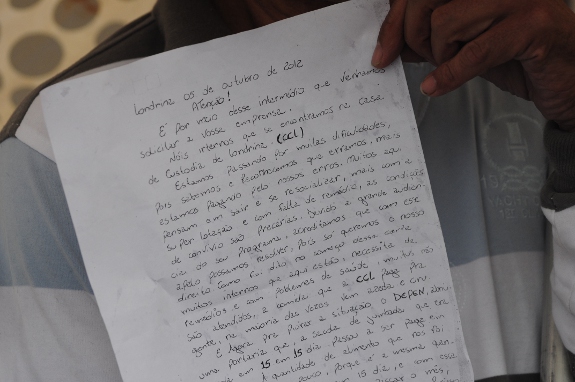 Londrina 05 de outubro de 2012
Atenção!
É por meio desse intermédio que venhamos
solicitar a vossa empresa.
Nós internos que se encontramos na casa
de Custodia de londrina, (CCL)
Estamos passando por muitas dificuldades,
pois sabemos e reconhecemos que erramos, mais
estamos pagando pelo nossos erros. Muitos aqui
pensam em sair e se ressocializar, mais com a
super lotação e com falta de remédio, as condições
de convivio são precárias. Devido a grande audiên
cia do seu programa, acreditamos que com esse
apelo possamos resolver, pois só queremos o nosso
direito como foi dito no começo dessa carta,
muitos internos que aqui estão, necessita de
remédios e com poblemas de saúde, muitos não
são atendidos, a comida que a CCL paga pra
gente, na maioria das vezes vem azeda e cru.
E Agora pra piorar a situação, o DEPEN, abriu
uma portaria que, a sacola de jumbada que era
de 15 em 15 dia, passou a ser paga em
A quantidade de alimento que nos
pouco, porque é a mesma quan
15 dia, e com esse
o mês,